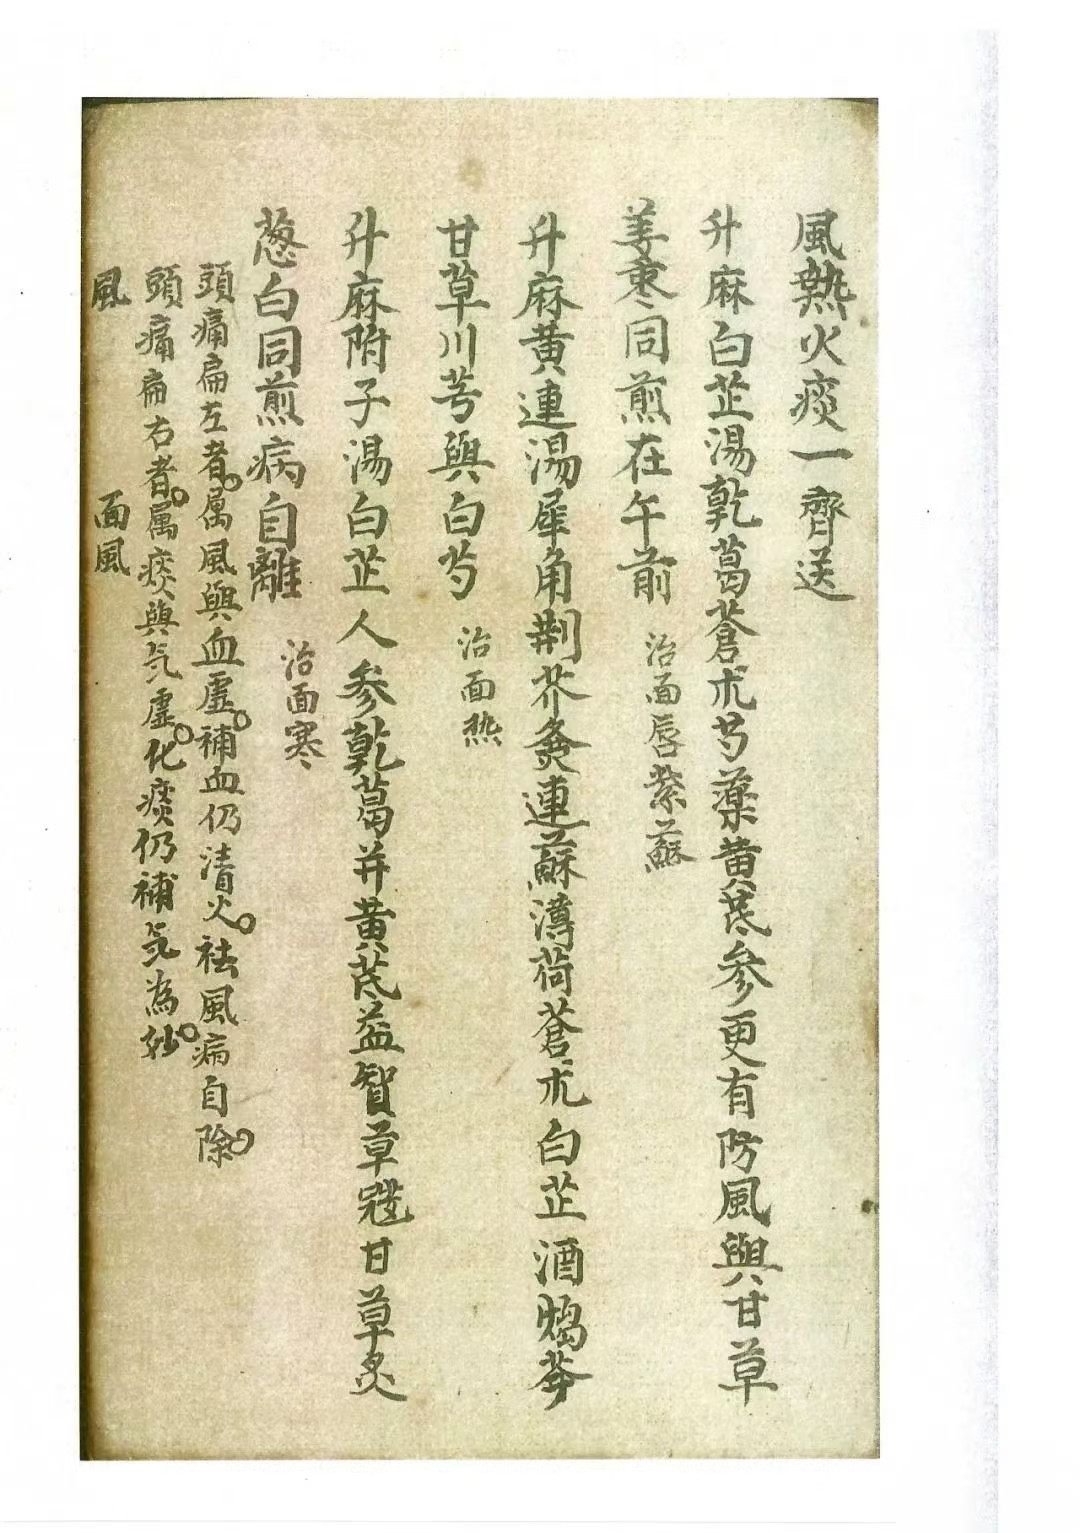 風熱火痰一齊送
升麻白芷湯乾葛蒼朮芍藥黃芪參更有防風與甘草
姜棗同煎在午前 治面唇紫蘇
升麻黃連湯犀角荆芥灸連蘇薄荷蒼朮白芷酒煱芩
甘草川芎與白芍 治面热
升麻附子湯白芷人參乾葛并黃芪益智草蔻甘草炙
葱白同煎病自離 治面寒
頭痛扁左者。属風與血虚。補血仍清火。祛風病自除。
頭痛扁右者。属痰與気虚。化痰仍補気為妙。
風 面風